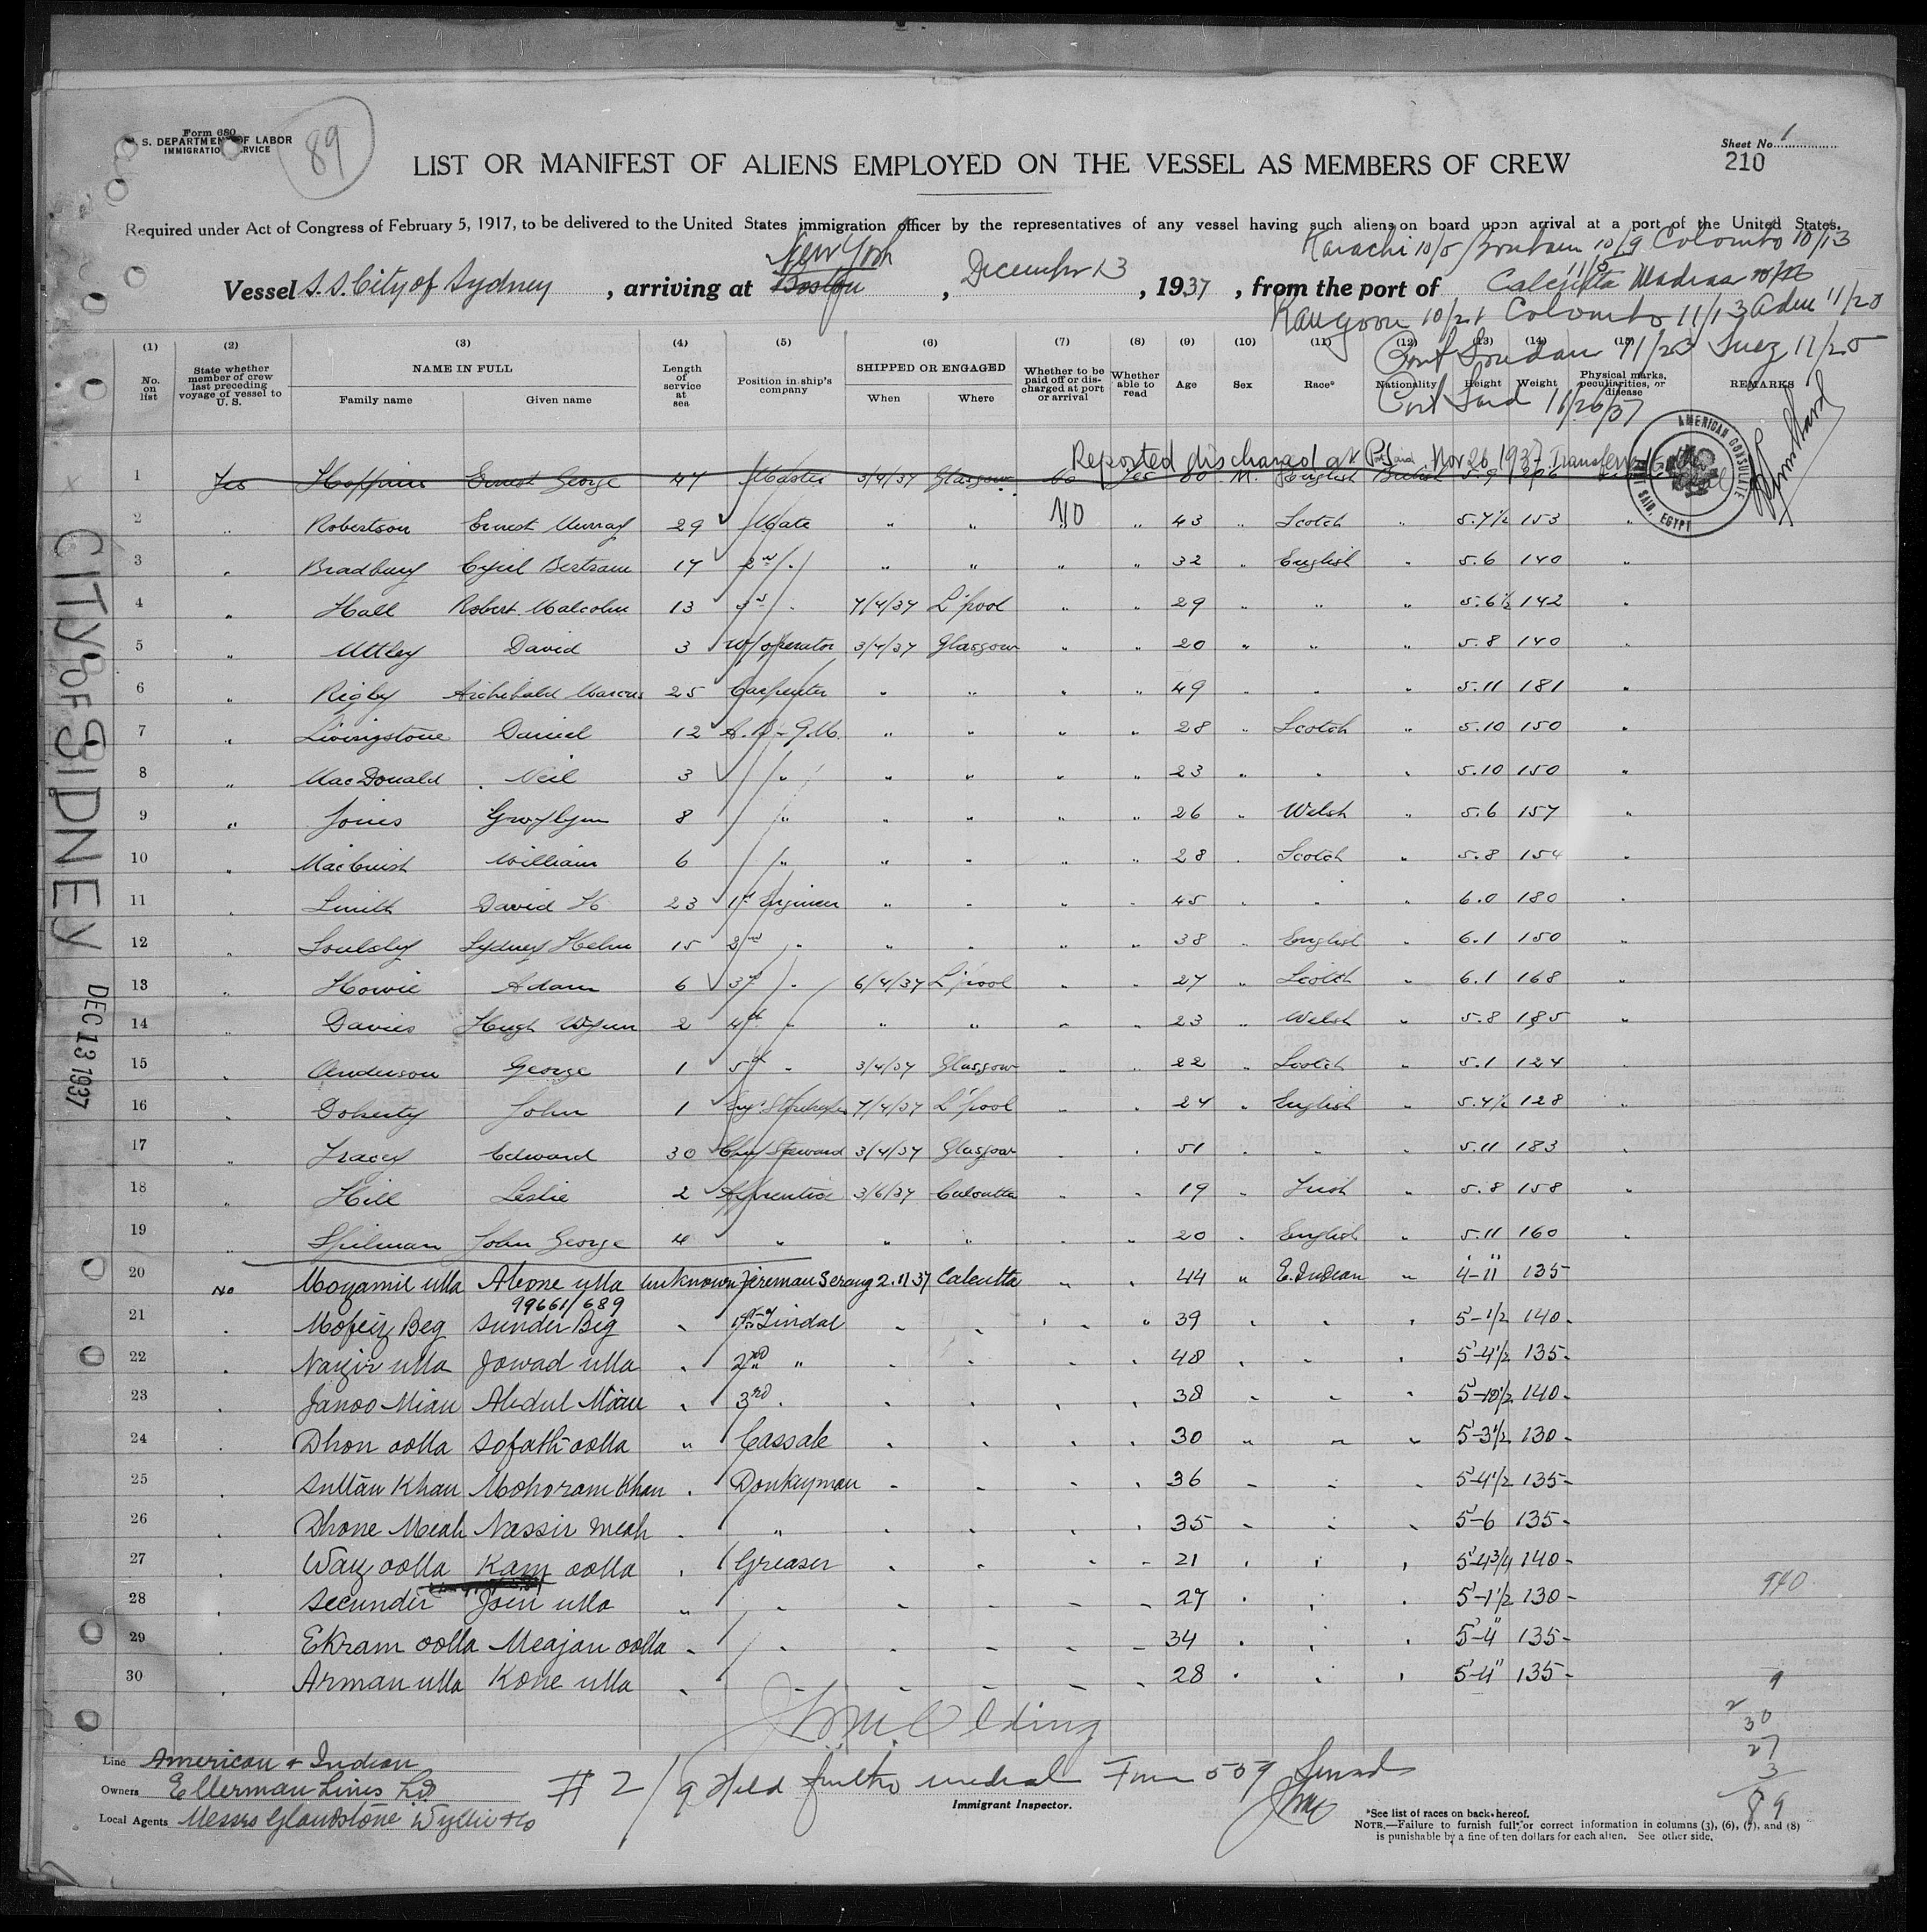 Form 680
U. S. DEPARTMENT OF LABOR
IMMIGRATION SERVICE
89
Sheet No. 1
210
LIST OR MANIFEST OF ALIENS EMPLOYED ON THE VESSEL AS MEMBERS OF CREW
Required under Act of Congress of February 5, 1917, to be delivered to the United States immigration officer by the representatives of any vessel having such aliens on board upon arrival at a port of the United States.
Karachi 10/5 10/9 Colombo 10/13
New York
Vessel S.S. City of Sydney, arriving at Boston, December 13, 1937, from the port of Calcutta Madras
Rangoon 10/21 Colombo 11/13 Aden 11/20
Port Soudan 11/23 Suez 11/25
Port Said 11/26/37
(1) (2) (3) (4) (5) (6) (7) (8) (9) (10) (11) (12) (13) (14) (15)
No. on list
State whether member of crew last preceding voyage of vessel to U. S.
NAME IN FULL
Family name Given name
Length of service at sea
Position in ship's company
SHIPPED OR ENGAGED
When Where
Whether to be paid off or discharged at port or arrival
Whether able to read
Age Sex Race* Nationality Height Weight
Physical marks, peculiarities, or disease
REMARKS
AMERICAN CONSULATE
PORT SAID, EGYPT
Reported discharged at P. Said Nov 26 1937 Transferred
1 Yes Ernest George 47 Master 3/4/37 Glasgow No Yes 50 M. English British 5.9
2 " Robertson Ernest Murray 29 Mate " " NO " 43 " Scotch " 5.7½ 153 "
3 " Bradbury Cyril Bertram 17 2nd " " " " " 32 " English " 5.6 140 "
4 " Hall Robert Malcolm 13 3rd " 7/4/37 L'pool " " 29 " " " 5.6½ 142 "
5 " Uttley David 3 W/operator 3/4/37 Glasgow " " 20 " " " 5.8 140 "
6 " Rigby Archibald Marcus 25 Carpenter " " " " 49 " " " 5.11 181 "
7 " Livingstone Daniel 12 A.B - Q.M. " " " " 28 " Scotch " 5.10 150 "
8 " MacDonald Neil 3 " " " " " 23 " " " 5.10 150 "
9 " Jones Gwylym 8 " " " " " 26 " Welsh " 5.6 157 "
10 " MacCuish William 6 " " " " " 28 " Scotch " 5.8 154 "
11 " Smith David H. 23 1st Engineer " " " " 45 " " " 6.0 180 "
12 " Soulsby Sydney Helm 15 2nd " " " " " 38 " English " 6.1 150 "
13 " Howie Adam 6 3rd " 6/4/37 L'pool " " 27 " Scotch " 6.1 168 "
14 " Davies Hugh Wynn 2 4th " " " " " 23 " Welsh " 5.8 185 "
15 " Anderson George 1 5th " 3/4/37 Glasgow " " 22 " Scotch " 5.1 124 "
16 " Doherty John 1 7/4/37 L'pool " " 24 " English " 5.4½ 128 "
17 " Tracey Edward 30 Chief Steward 3/4/37 Glasgow " " 51 " " " 5.11 183 "
18 " Hill Leslie 2 Apprentice 3/6/37 Calcutta " " 19 " Irish " 5.8 158 "
19 " Spilman John George 4 " " " " " 20 " English " 5.11 160 "
20 No Moyamil ulla Abone ulla unknown Fireman Serang 2.11.37 Calcutta " " 44 " E. Indian " 4-11" 135
99661/689
21 " Mofeiz Beg Sunder Beg " 1st Tindal " " " " 39 " " " 5'-1/2 140 -
22 " Nazir ulla Jowad ulla " 2nd " " " " " 48 " " " 5'-4½ 135 -
23 " Janoo Mian Abdul Mian " 3rd " " " " " 38 " " " 5'-10½ 140 -
24 " Dhon oolla Sofath oolla " Cassab " " " " 30 " " " 5'-3½ 130 -
25 " Sultan Khan Mohoram Khan " Donkeyman " " " " 36 " " " 5'-4½ 135 -
26 " Dhone Meah Nassir Meah " " " " " " 35 " " " 5'-6 135 -
27 " Waz oolla Kam oolla " Greaser " " " " 21 " " " 5'-4¾ 140 -
28 " Secunder Join ulla " " " " " " 27 " " " 5'-1½ 130 -
29 " Ekram oolla Meajan oolla " " " " " " 34 " " " 5'-4" 135 -
30 " Arman ulla Kone ulla " " " " " " 28 " " " 5'-4" 135 -
940
9
2
30
27
3
89
Line American & Indian
Owners Ellerman Lines Ld
Local Agents Messrs Gladstone Wyllie & Co
# 2/9 Held further medical Form 559
Immigrant Inspector.
*See list of races on back hereof.
NOTE.—Failure to furnish full or correct information in columns (3), (6), (7), and (8)
is punishable by a fine of ten dollars for each alien. See other side.
CITY OF SIDNEY
DEC 13 1937